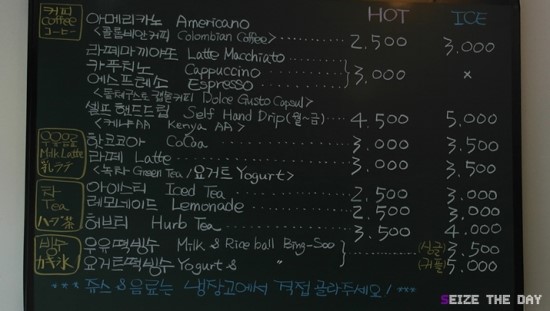 HOT ICE
커피 Coffee コーヒー
아메리카노 Americano 2.500 3.000
<콜롬비안커피 Colombian Coffee>
라떼마끼아또 Latte Macchiato
카푸치노 Cappuccino 3.000 x
에스프레소 Espresso
<돌체구스토 캡슐커피 Dolce Gusto Capsul>
셀프 핸드드립 Self Hand Drip (월~금) 4.500 5.000
<케냐AA Kenya AA>
우유음료 Milk Latte 乳ラテ
핫코코아 CoCoa 3.000 3.500
라떼 Latte 3.000 3.500
<녹차 Green Tea / 요거트 Yogurt>
차 Tea ハーブ茶
아이스티 Iced Tea 2.500 3.000
레모네이드 Lemonade 2.500 3.000
허브티 Hurb Tea 3.500 4.000
빙수 カキ氷
우유떡빙수 Milk & Rice ball Bing-Soo (싱글) 3.500
요거트떡빙수 Yogurt & " (커플) 5.000
*** 쥬스 & 음료는 냉장고에서 직접 골라주세요! ***
SEIZE THE DAY